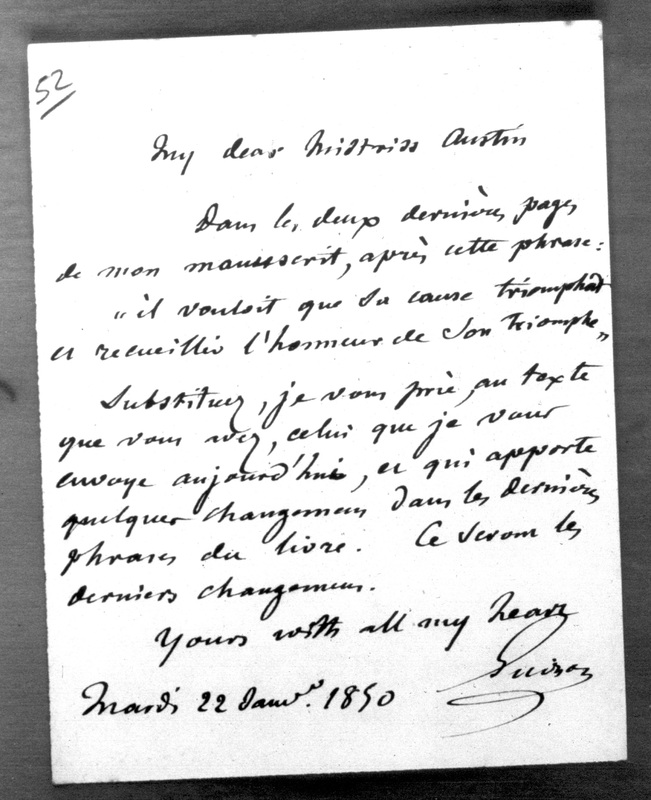 52
My dear Mistriss Austin
Dans les deux dernières pages
de mon manuscrit, après cette phrase :
"il vouloit que sa cause triomphât
et recueillir l'honneur de son triomphe"
Substituez, je vous prie, au texte
que vous avez, celui que je vous
envoye aujourd'hui, et qui apporte
quelques changemens dans les dernières
phrases du livre. Ce seront les
derniers changemens.
Yours with all my heart
Guizot
Mardi 22 Janvr. 1850